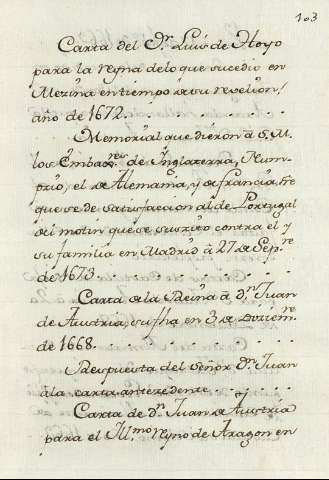 103
Carta del Dr. Luis de Hoyo
para la reyna delo que sucedio en
Mezina en tiempo desu revelion,
año de 1672.
Memorial que dieron à S. M.
los Embaxres. de Inglaterra,
el de Alemania, y de francia,
que se de satisfacion al de Portugal
del motin que se suscito contra el y
su familia en Madrid à 27 de Sepre.
de 1673.
Carta dela Reina à Dn. Juan
de Austria, su fha en 3 de Dizienre.
de 1668.
Respuesta del Señor Dn. Juan
àla carta antezedente
Carta de Dn. Juan de Austria
para el Illmo. reyno de Aragon en